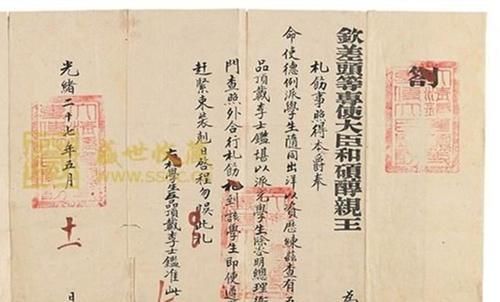 欽差頭等專使大臣和碩醇親王
為
劄
札飭事照得本爵奉
命使德例派學生隨同出洋以資歷練茲查有五
品頂戴李士鑑堪以派充學生除咨明總理衙
門查照外合行札飭札到該學生即便遵
趕緊束裝剋日啓程勿悞此札
右札學生五品頂戴李士鑑准此
光緒二十七年五月
十一
日
盛世收藏